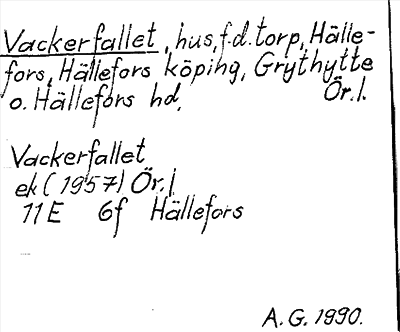 Vackerfallet, hus, f.d. torp, Hälle-
fors, Hällefors köping, Grythytte
o. Hällefors hd. Ör.l.
Vackerfallet
ek (1957) Ör.l
11E 6f Hällefors
A.G. 1990.